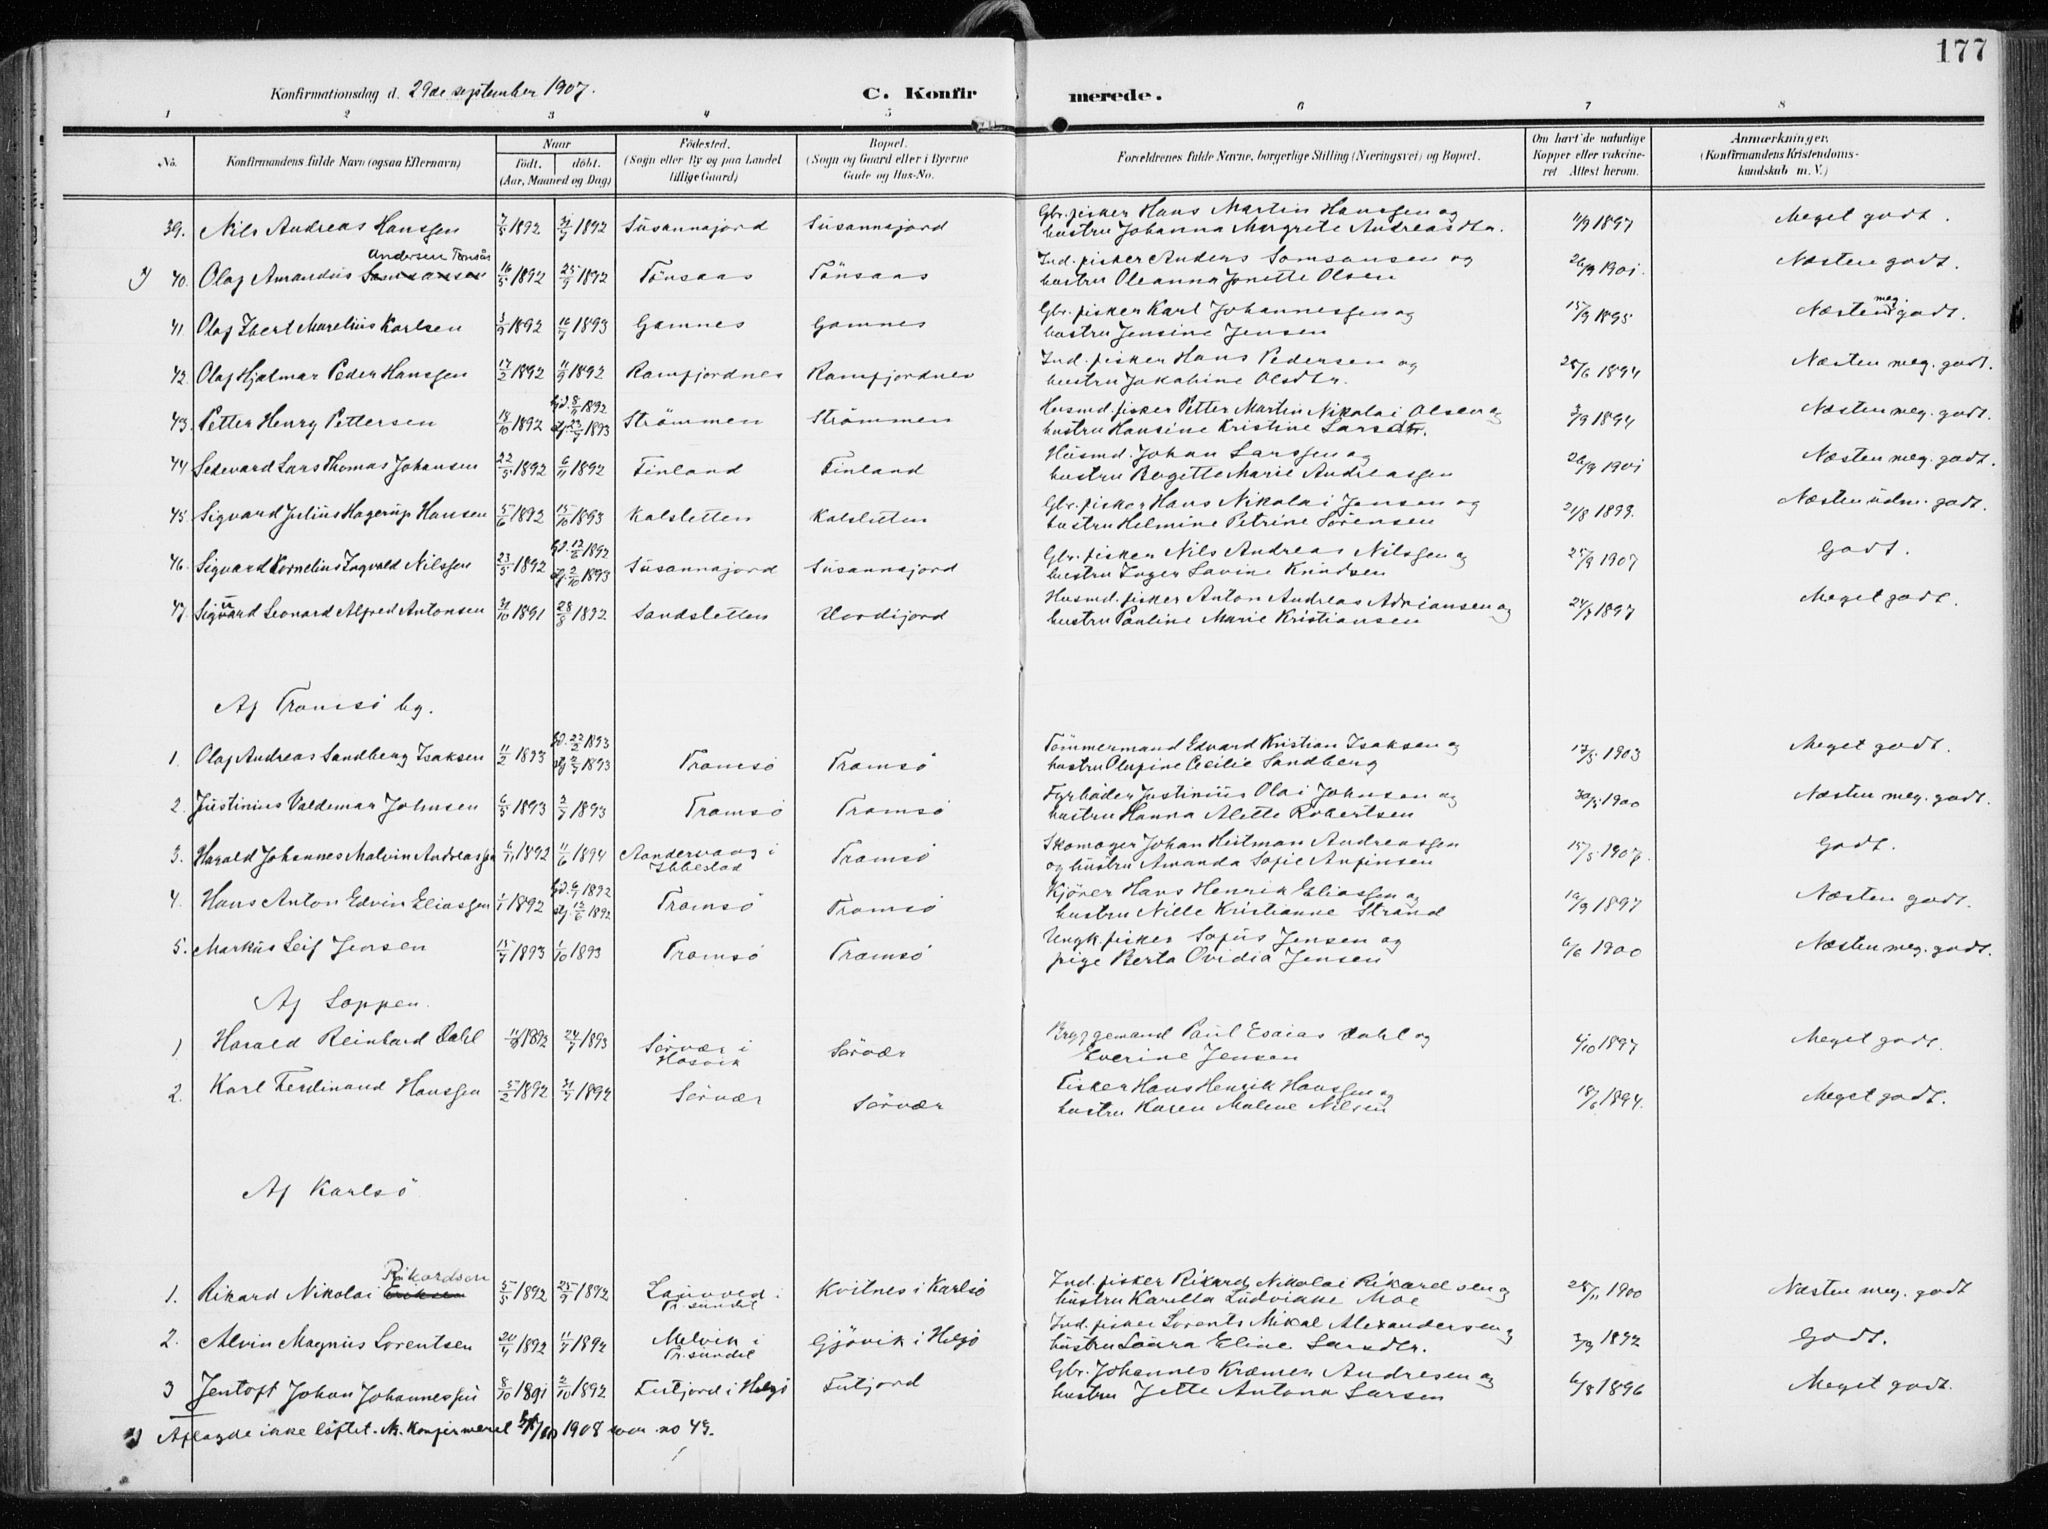 177
Konfirmationsdag d. 29de september 1907. C. Konfirmerede.
1 2 3 4 5 6 7 8
No. Konfirmandens fulde Navn (ogsaa Efternavn) Naar født. døbt. (Aar, Maaned og Dag) Fødested. (Sogn eller By og paa Landet tillige Gaard) Bopæl. (Sogn og Gaard eller i Byerne Gade og Hus-No. Forældrenes fulde Navne, borgerlige Stilling (Næringsvei) og Bopæl. Om havt de naturlige Kopper eller vakcineret Attest herom. Anmærkninger. (Konfirmandens Kristendomskundskab m. V.)
39. Nils Andreas Hanssen 7/5 1892 31/7 1892 Susannajord Susannajord Gbr. fisker Hans Martin Hanssen og hustru Johanna Margrete Andreasdtr. 11/9 1897 Meget godt.
40. Olaf Amandus Samsonsen Andersen Tønsås 16/5 1892 25/9 1892 Tønsaas Tønsaas Ind. fisker Anders Samsonsen og hustru Oleanna Jonette Olsen 26/9 1901. Næsten godt.
41. Olaf Ebert Marelius Karlsen 3/9 1892 16/7 1893 Gamnes Gamnes Gbr. fisker Karl Johannessen og hustru Jensine Jensen 15/9 1895 Næsten meg. godt.
42. Olaf Hjalmar Peder Hanssen 17/2 1892 11/9 1892 Ramfjordnes Ramfjordnes Ind. fisker Hans Pedersen og hustru Jakobine Olsdtr. 25/6 1894 Næsten meg. godt.
43. Petter Henry Pettersen 18/10 1892 Hjd. 8/11 1892 stf. 23/7 1893 Strømmen Strømmen Husmd. fisker Petter Martin Nikolai Olsen og hustru Hansine Kristine Larsdtr. 3/9 1894 Næsten meg. godt.
44 Sedevard Lars Thomas Johansen 22/5 1892 6/11 1892 Finland Finland Husmd. Johan Larssen og hustru Bergitte Marie Andreassen 26/9 1901 Næsten meg. godt.
45. Sigvard Julius Hagerup Hansen 5/6 1892 15/10 1893 Kalsletten Kalsletten Gbr. fisker Hans Nikolai Jensen og hustru Helmine Petrine Sørensen 21/8 1899. Næsten udm. godt.
46. Sigvard Kornelius Ingvald Nilssen 23/5 1892 Hjd. 12/6 1892 stf. 2/10 1893 Susannajord Susannajord Gbr. fisker Nils Andreas Nilssen og hustru Inger Lavine Knudsen 25/9 1907 Godt.
47. Sigurd Leonard Alfred Antonsen 31/10 1891 28/8 1892 Sandsletten Hordijord Husmd. fisker Anton Andreas Adriansen og hustru Pauline Marie Kristiansen 24/7 1897 Meget godt.
Af Tromsø by.
1. Olaf Andreas Sandberg Isaksen 11/2 1893 Hjd. 22/2 1893 stf. 2/7 1893 Tromsø Tromsø Tømmermand Edvard Kristian Isaksen og hustru Olufine Cecilie Sandberg 17/5 1903 Meget godt.
2. Justinius Valdemar Johnsen 6/5 1893 2/7 1893 Tromsø Tromsø Fyrbøder Justinius Olai Johnsen og hustru Hanna Alette Robertsen 30/5 1900 Næsten meg. godt.
3. Harald Johannes Malvin Andreassen 6/11 1892 11/6 1894 Aandervaag i Ibbestad Tromsø Skomager Johan Heitman Andreassen og hustru Amanda Sofie Anfinsen 15/5 1907. Godt.
4. Hans Anton Edvin Eliassen 1/1 1892 Hjd. 6/1 1892 stf. 12/6 1892 Tromsø Tromsø Kjører Hans Henrik Eliassen og hustru Nille Kristianne Strand 10/9 1897 Næsten godt.
5. Markus Leif Jensen 15/7 1893 1/10 1893 Tromsø Tromsø Ungk. fisker Sofus Jensen og pige Berta Ovidia Jensen 6/6 1900 Næsten meg. godt.
Af Loppen.
1 Harald Reinhard Dahl 1892 24/7 1893 Sørvær i Hasvik Sørvær Bryggemand Paul Esaias Dahl og Everine Jensen 4/10 1897 Meget godt.
2. Karl Ferdinand Hanssen 5/2 1892 31/7 1892 Sørvær Sørvær Fisker Hans Henrik Hanssen og hustru Karen Malene Nilsen 18/6 1894. Meget godt.
Af Karlsø
1. Rikard Nikolai Eriksen Rikardsen 5/5 1892 25/9 1892 Lanvved i Tr.sundet Kvitnes i Karlsø Ind. fisker Rikard Nikolai Rikardsen og hustru Karella Ludvikke Moe 28/11 1900 Næsten meg. godt
2. Alvin Magnus Lorentsen 20/4 1892 11/7 1892 Melvik i Tr.sundet Gjøvik i Helgø Ind. fisker Lorents Mikal Alexandersen og hustru Laura Eline Larsdtr. 3/9 1892 Godt.
3 Jentoft Johan Johannessen 8/10 1891 2/10 1892 Futjord i Helgø Futjord Gbr. Johannes Kræmer Andresen og hustru Jette Antona Larsen 6/8 1896 Meget godt.
Aflagde ikke løftet. Konfirmeret 1908 som no 43.